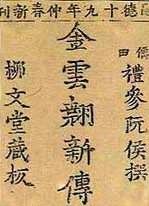 德十九年仲春新刊
僊田
禮參阮侯撰
金雲翹新傳
柳文堂藏板